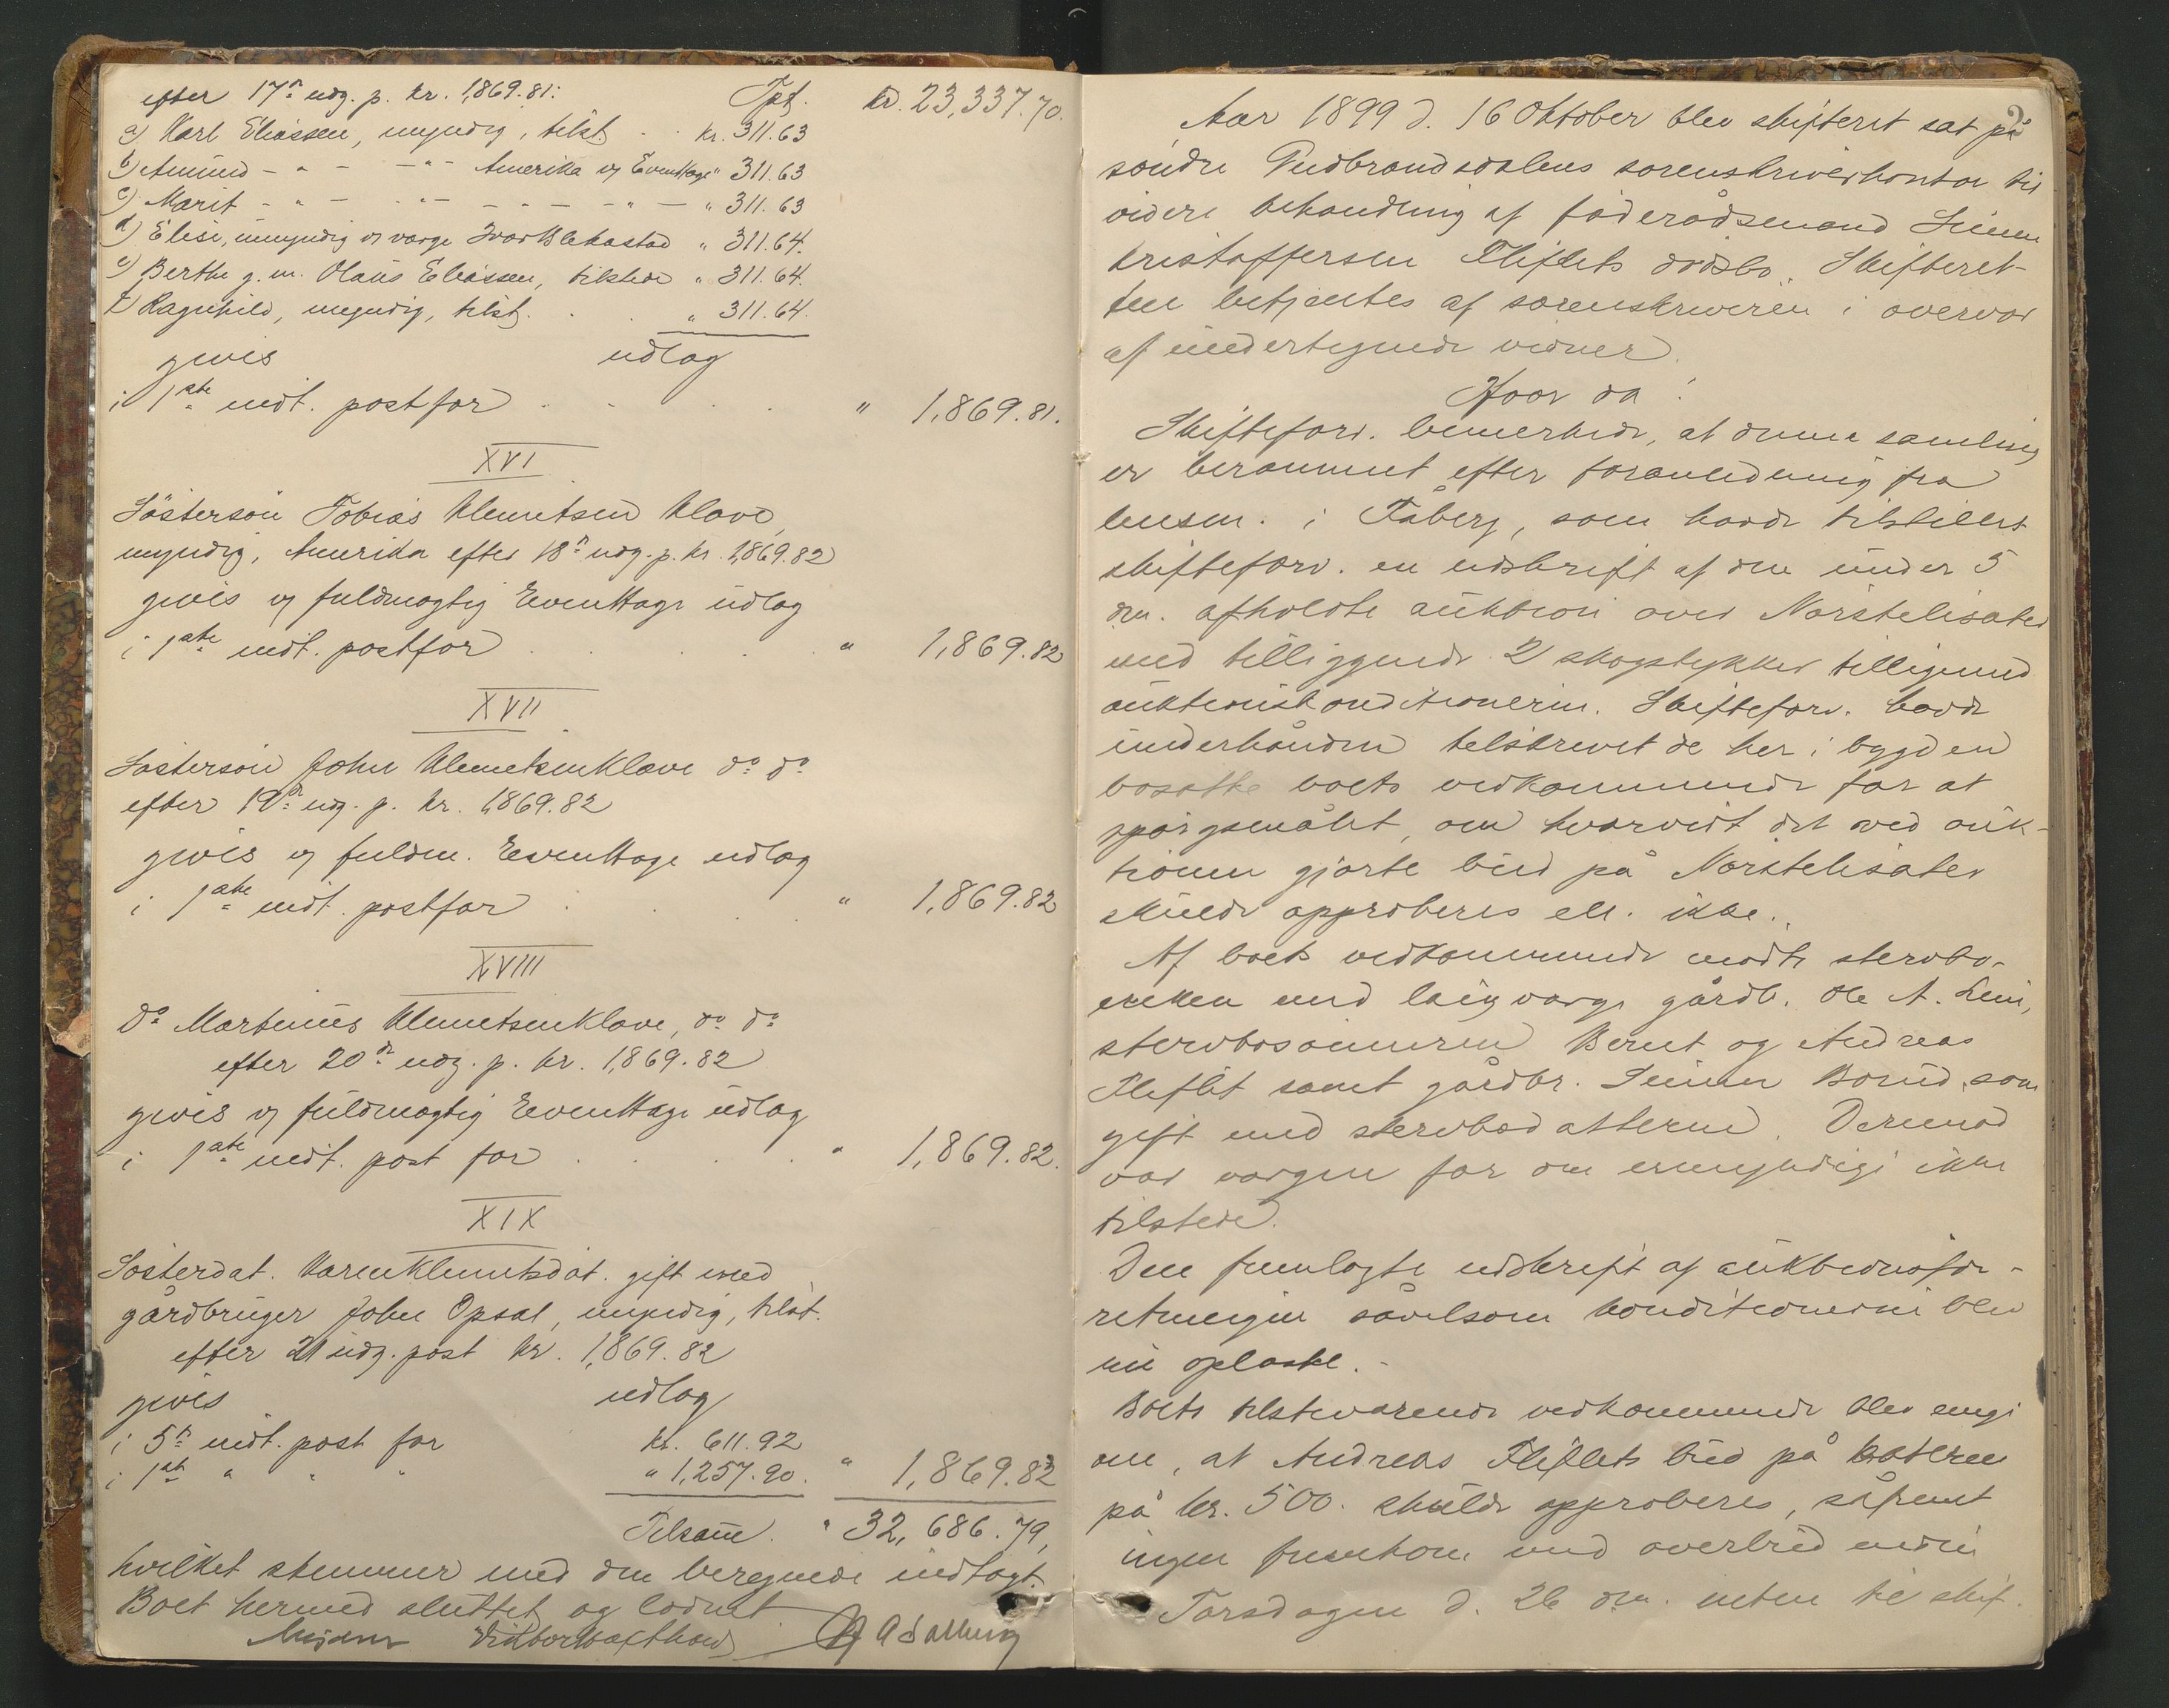 efter 17de udg. p. kr. 1,869.81: Tpt. kr. 23,337.70.
a) Karl Eliassen, myndig, tilst. . . kr. 311.63
b) Amund - " - - " - Amerika v/ Evenhage " 311.63
c) Marit - " - - " - - " - - " - " 311.63
d) Elise, umyndig v/ værge Ivar Blekastad " 311.64.
e) Berthe g. m. Olaus Eliassen, tilstede " 311.64.
f) Ragnhild, myndig, tilst. . . " 311.64.
gives udlæg
i 1ste indt. post for . . . . " 1,869.81.
XVI
Søstersøn Tobias Klemetsen Klave,
myndig, Amerika efter 18de udg. p. kr. 1,869.82
gives v/ fuldmægtig Evenhage udlæg
i 1ste indt. post for . . . . " 1,869.82
XVII
Søstersøn John Klemetsen Klave do do
efter 19de udg. p. kr. 1,869.82
gives v/ fuldm. Evenhage udlæg
i 1ste indt. post for . . . . " 1,869.82
XVIII
Do Martinus Klemetsen Klave, do do
efter 20de udg. p. kr. 1,869.82
gives v/ fuldmægtig Evenhage udlæg
i 1ste indt. post for . . . . " 1,869.82.
XIX
Søsterdat. Karen Klemetsdat. gift med
gårdbruger John Opsal, myndig, tilst.
efter 21 udg. post kr. 1,869.82
gives udlæg
i 5te indt. post for kr. 611.92
i 1ste " " " " 1,257.90. " 1,869.82
Tilsam̄. " 32,686.79,
hvilket stemmer med den beregnede indtægt.
Boet hermed sluttet og lodnet
2
Aar 1899 d. 16 Oktober blev skifteret sat på
søndre Gudbrandsdalens sorenskriverkontor til
videre behandling af føderådsmand Simen
Kristoffersen Fliflets dødsbo. Skifteret-
ten betjentes af sorenskriveren i overvær
af undertegnede vidner.
Hvor da:
Skifteforv. bemerkede, at denne samling
er berammet efter foranledning fra
lensm. i Fåberg, som havde tilstillet
skifteforv. en udskrift af den under 5
dm. afholdte auktion over Nørstelisæter
med tilliggende 2 skogstykker tilligemed
auktionskonditionerne. Skifteforv. havde
underhånden tilskrevet de her i bygden
bosatte boets vedkommende for at
spørgsmålet, om hvorvidt det ved auk-
tionen gjorte bud på Nørstelisæter
skulde approberes ell. ikke.
Af boets vedkommende mødte stervbo-
enken med laugværge gårdb. Ole A. Lien,
stervbosønnerne Bernt og Andreas
Fliflet samt gårdbr. Simen Borud, som
gift med stervbodatteren. Derimod
var værgen for den umyndige ikke
tilstede.
Den fremlagte udskrift af auktionsfor-
retningen såvelsom konditionerne blev
nu oplæst.-
Boets tilstedværende vedkommende blev enige
om, at Andreas Fliflets bud på sæteren
på kr. 500. skulde approberes, såfremt
ingen fremkom med overbud inden
Torsdagen d. 26 dm. enten til skif.